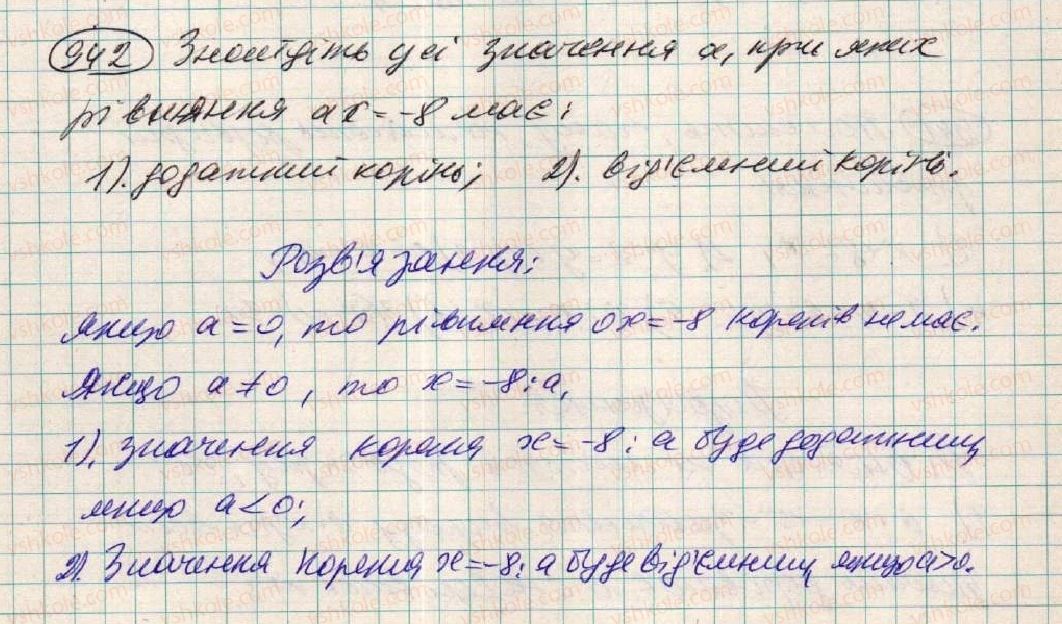 942 Знайдіть усі значення a, при яких
рівняння ax = -8 має:
1). додатний корінь; 2). від'ємний корінь.
Розв'язання:
Якщо a = 0, то рівняння 0x = -8 коренів немає.
Якщо a ≠ 0, то x = -8 : a,
1). значення кореня x = -8 : a буде додатним
якщо a < 0;
2). Значення кореня x = -8 : a буде від'ємним якщо a > 0.